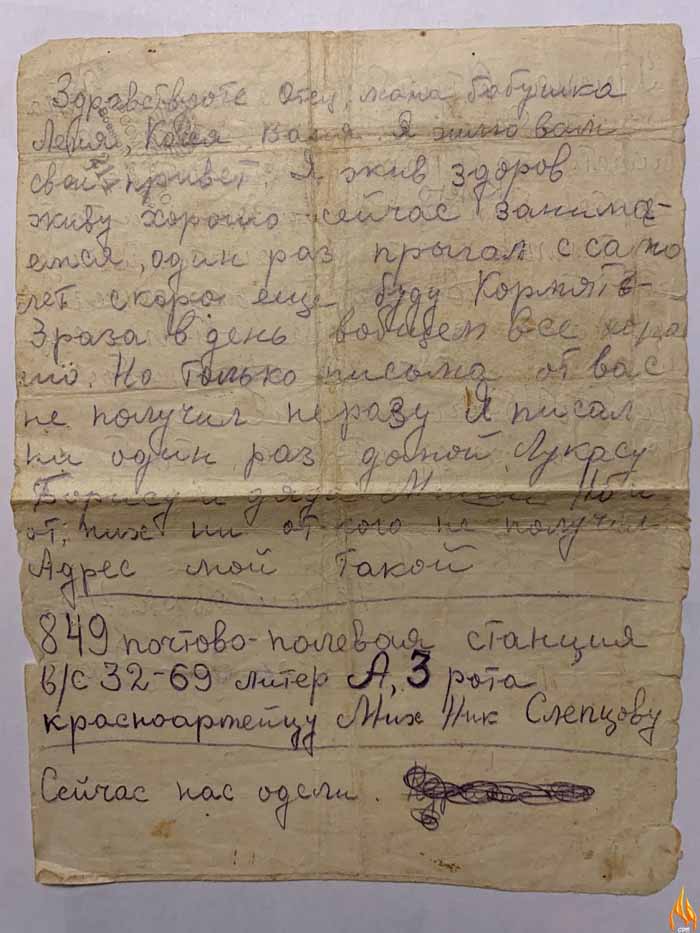 Здравствуите Отец, мама бабушка
Леня, Коля, Ваня. Я шлю вам
свой привет. Я жив здоров
живу хорошо сейчас занима-
емся, один раз прыгал с само
лет скоро еще буду Кормят-
3 раза в день вобщем все хора
шо. Но только письма от вас
не получил неразу Я писал
ни один раз домой, Лукасу
Борису и дяди Мише Но и
от них ни от кого не получил
Адрес мой такой
849 почтово-полевая станция
в/с 32-69 литер А, 3 рота
красноармейцу Мих Ник Слепцову
Сейчас нас одели.